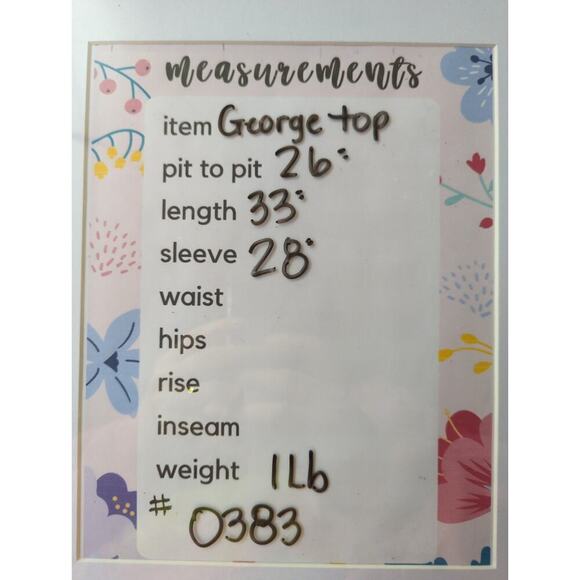 measurements
item George top
pit to pit 26"
length 33"
sleeve 28"
waist
hips
rise
inseam
weight 1Lb
# 0383